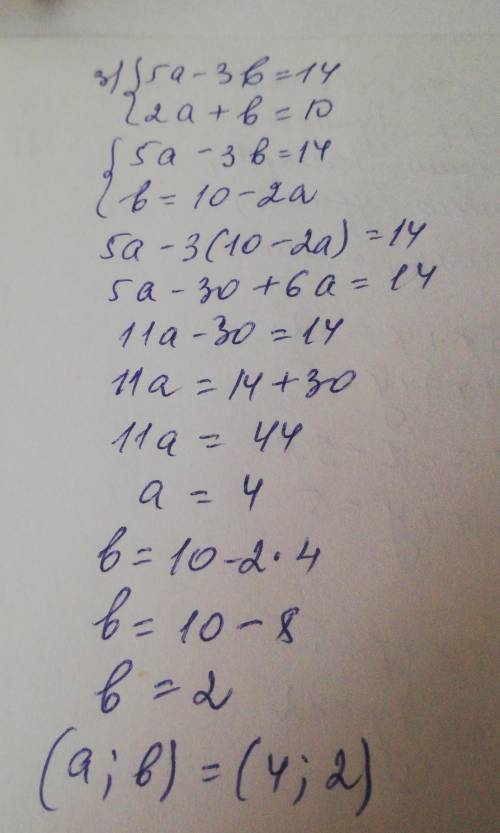 3) { 5a - 3b = 14
{ 2a + b = 10
{ 5a - 3b = 14
{ b = 10 - 2a
5a - 3(10 - 2a) = 14
5a - 30 + 6a = 14
11a - 30 = 14
11a = 14 + 30
11a = 44
a = 4
b = 10 - 2 · 4
b = 10 - 8
b = 2
(a; b) = (4; 2)